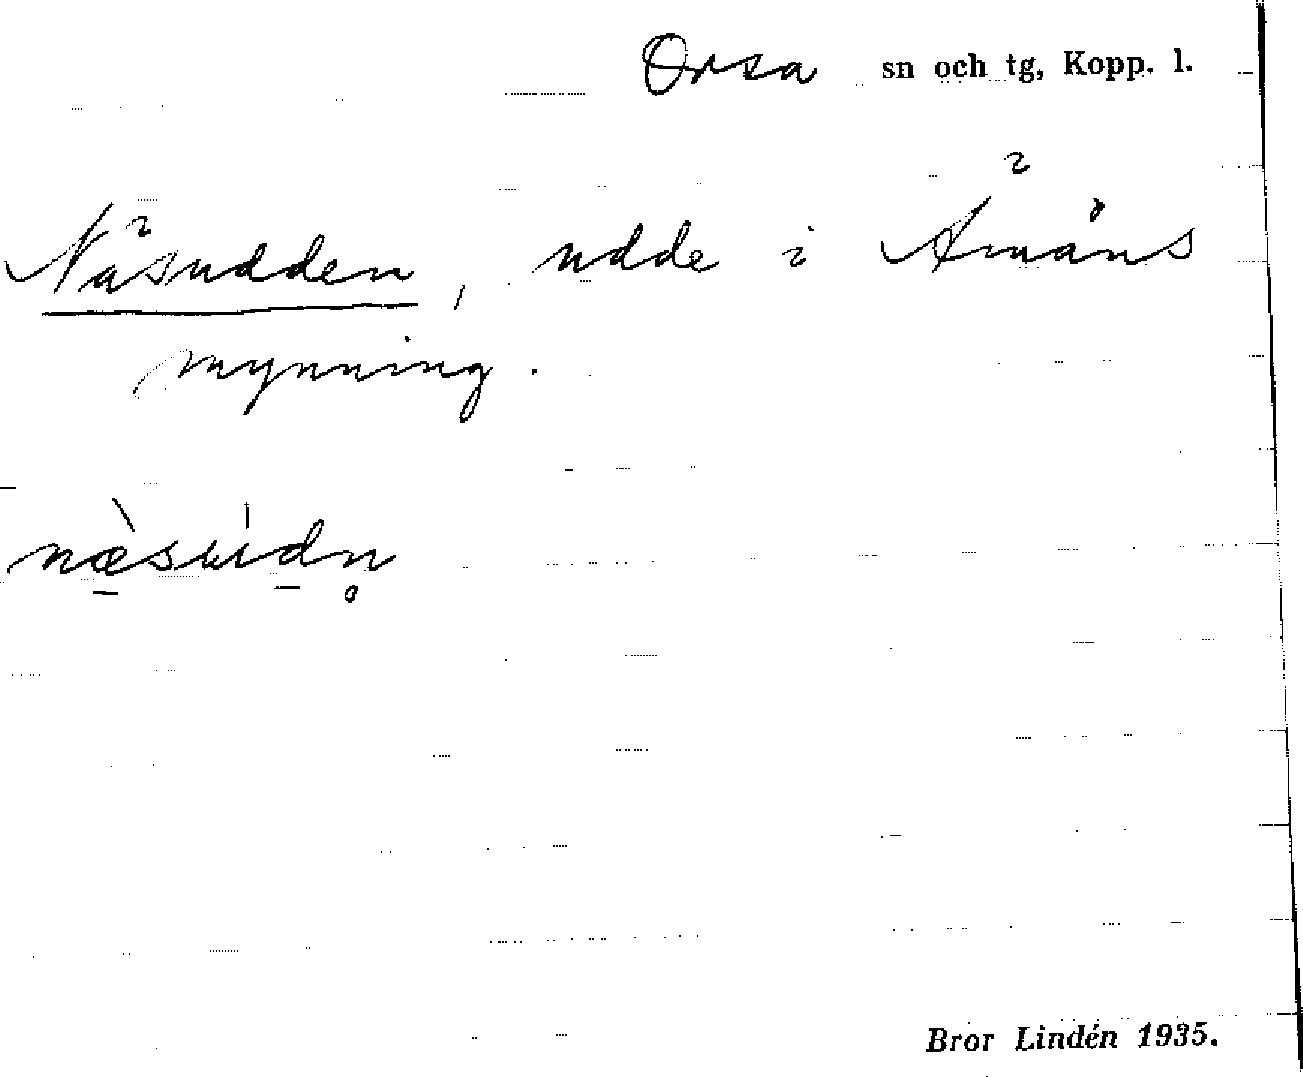 Orsa sn och tg, Kopp. l.
Näsudden, udde i Ämåns
mynning.
Bror Lindén 1935.